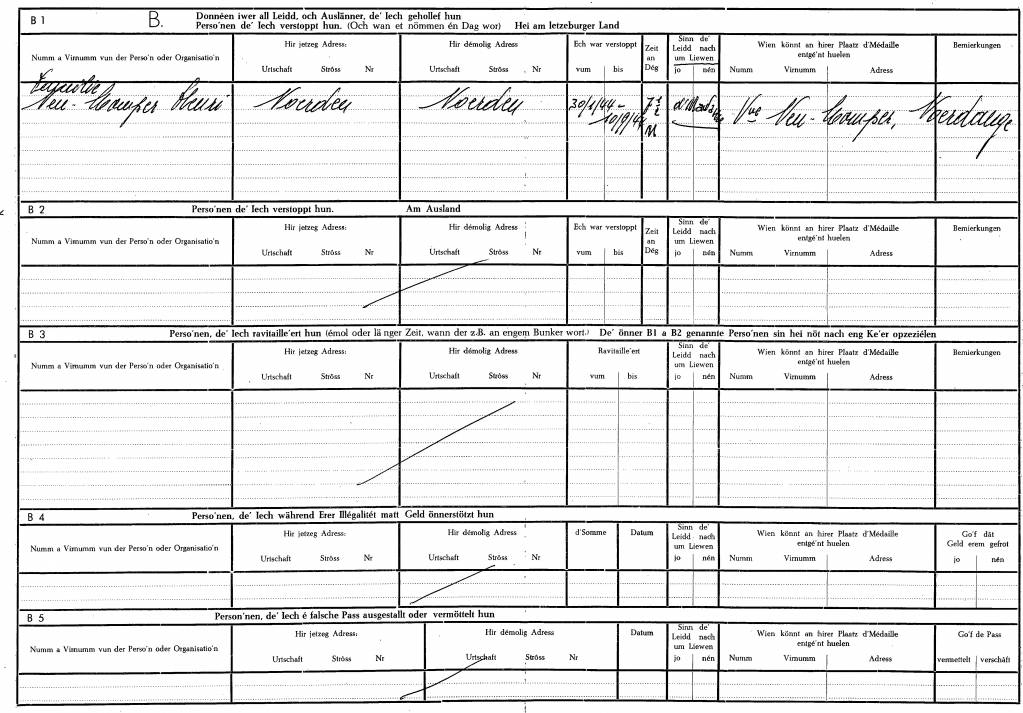 B 1 B. Donnéen iwer all Leidd, och Auslänner, de' Iech gehollef hun
Perso'nen de' Iech verstoppt hun. (Och wan et nömmen én Dag wor) Hei am letzeburger Land
Numm a Virnumm vun der Perso'n oder Organisatio'n Hir jetzeg Adress: Hir démolig Adress Ech war verstoppt Zeit an Dég Sinn de' Leidd nach um Liewen Wien könnt an hirer Plaatz d'Médaille entgé'nt huelen Bemierkungen
Urtschaft Ströss Nr Urtschaft Ströss Nr vum bis jo nén Numm Virnumm Adress
Famille
Neu-Comper Henri Noerden Noerden 30/1/44 - 7 1/2 Vve Neu-Comper, Noerdange
10/9/44 M
B 2 Perso'nen de' Iech verstoppt hun. Am Ausland
Numm a Virnumm vun der Perso'n oder Organisatio'n Hir jetzeg Adress: Hir démolig Adress Ech war verstoppt Zeit an Dég Sinn de' Leidd nach um Liewen Wien könnt an hirer Plaatz d'Médaille entgé'nt huelen Bemierkungen
Urtschaft Ströss Nr Urtschaft Ströss Nr vum bis jo nén Numm Virnumm Adress
B 3 Perso'nen, de' Iech ravitaille'ert hun (émol oder länger Zeit, wann der z.B. an engem Bunker wort.) De' önner B1 a B2 genannte Perso'nen sin hei nöt nach eng Ke'er opzeziélen
Numm a Virnumm vun der Perso'n oder Organisatio'n Hir jetzeg Adress: Hir démolig Adress Ravitaille'ert Sinn de' Leidd nach um Liewen Wien könnt an hirer Plaatz d'Médaille entgé'nt huelen Bemierkungen
Urtschaft Ströss Nr Urtschaft Ströss Nr vum bis jo nén Numm Virnumm Adress
B 4 Perso'nen, de' Iech während Erer Illégalitét matt Geld önnerstötzt hun
Numm a Virnumm vun der Perso'n oder Organisatio'n Hir jetzeg Adress: Hir démolig Adress d'Somme Datum Sinn de' Leidd nach um Liewen Wien könnt an hirer Plaatz d'Médaille entgé'nt huelen Go'f dât Geld erem gefrot
Urtschaft Ströss Nr Urtschaft Ströss Nr jo nén Numm Virnumm Adress jo nén
B 5 Person'nen, de' Iech é falsche Pass ausgestallt oder vermöttelt hun
Numm a Virnumm vun der Perso'n oder Organisatio'n Hir jetzeg Adress: Hir démolig Adress Datum Sinn de' Leidd nach um Liewen Wien könnt an hirer Plaatz d'Médaille entgé'nt huelen Go'f de Pass
Urtschaft Ströss Nr Urtschaft Ströss Nr jo nén Numm Virnumm Adress vermettelt verschâft